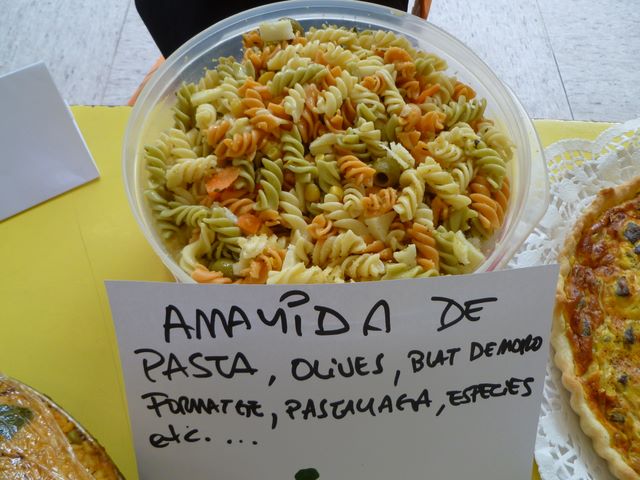 AMAYIDA DE
PASTA, OLIVES, BLAT DE MORO
FORMATGE, PASTANAGA, ESPECIES
etc. ....